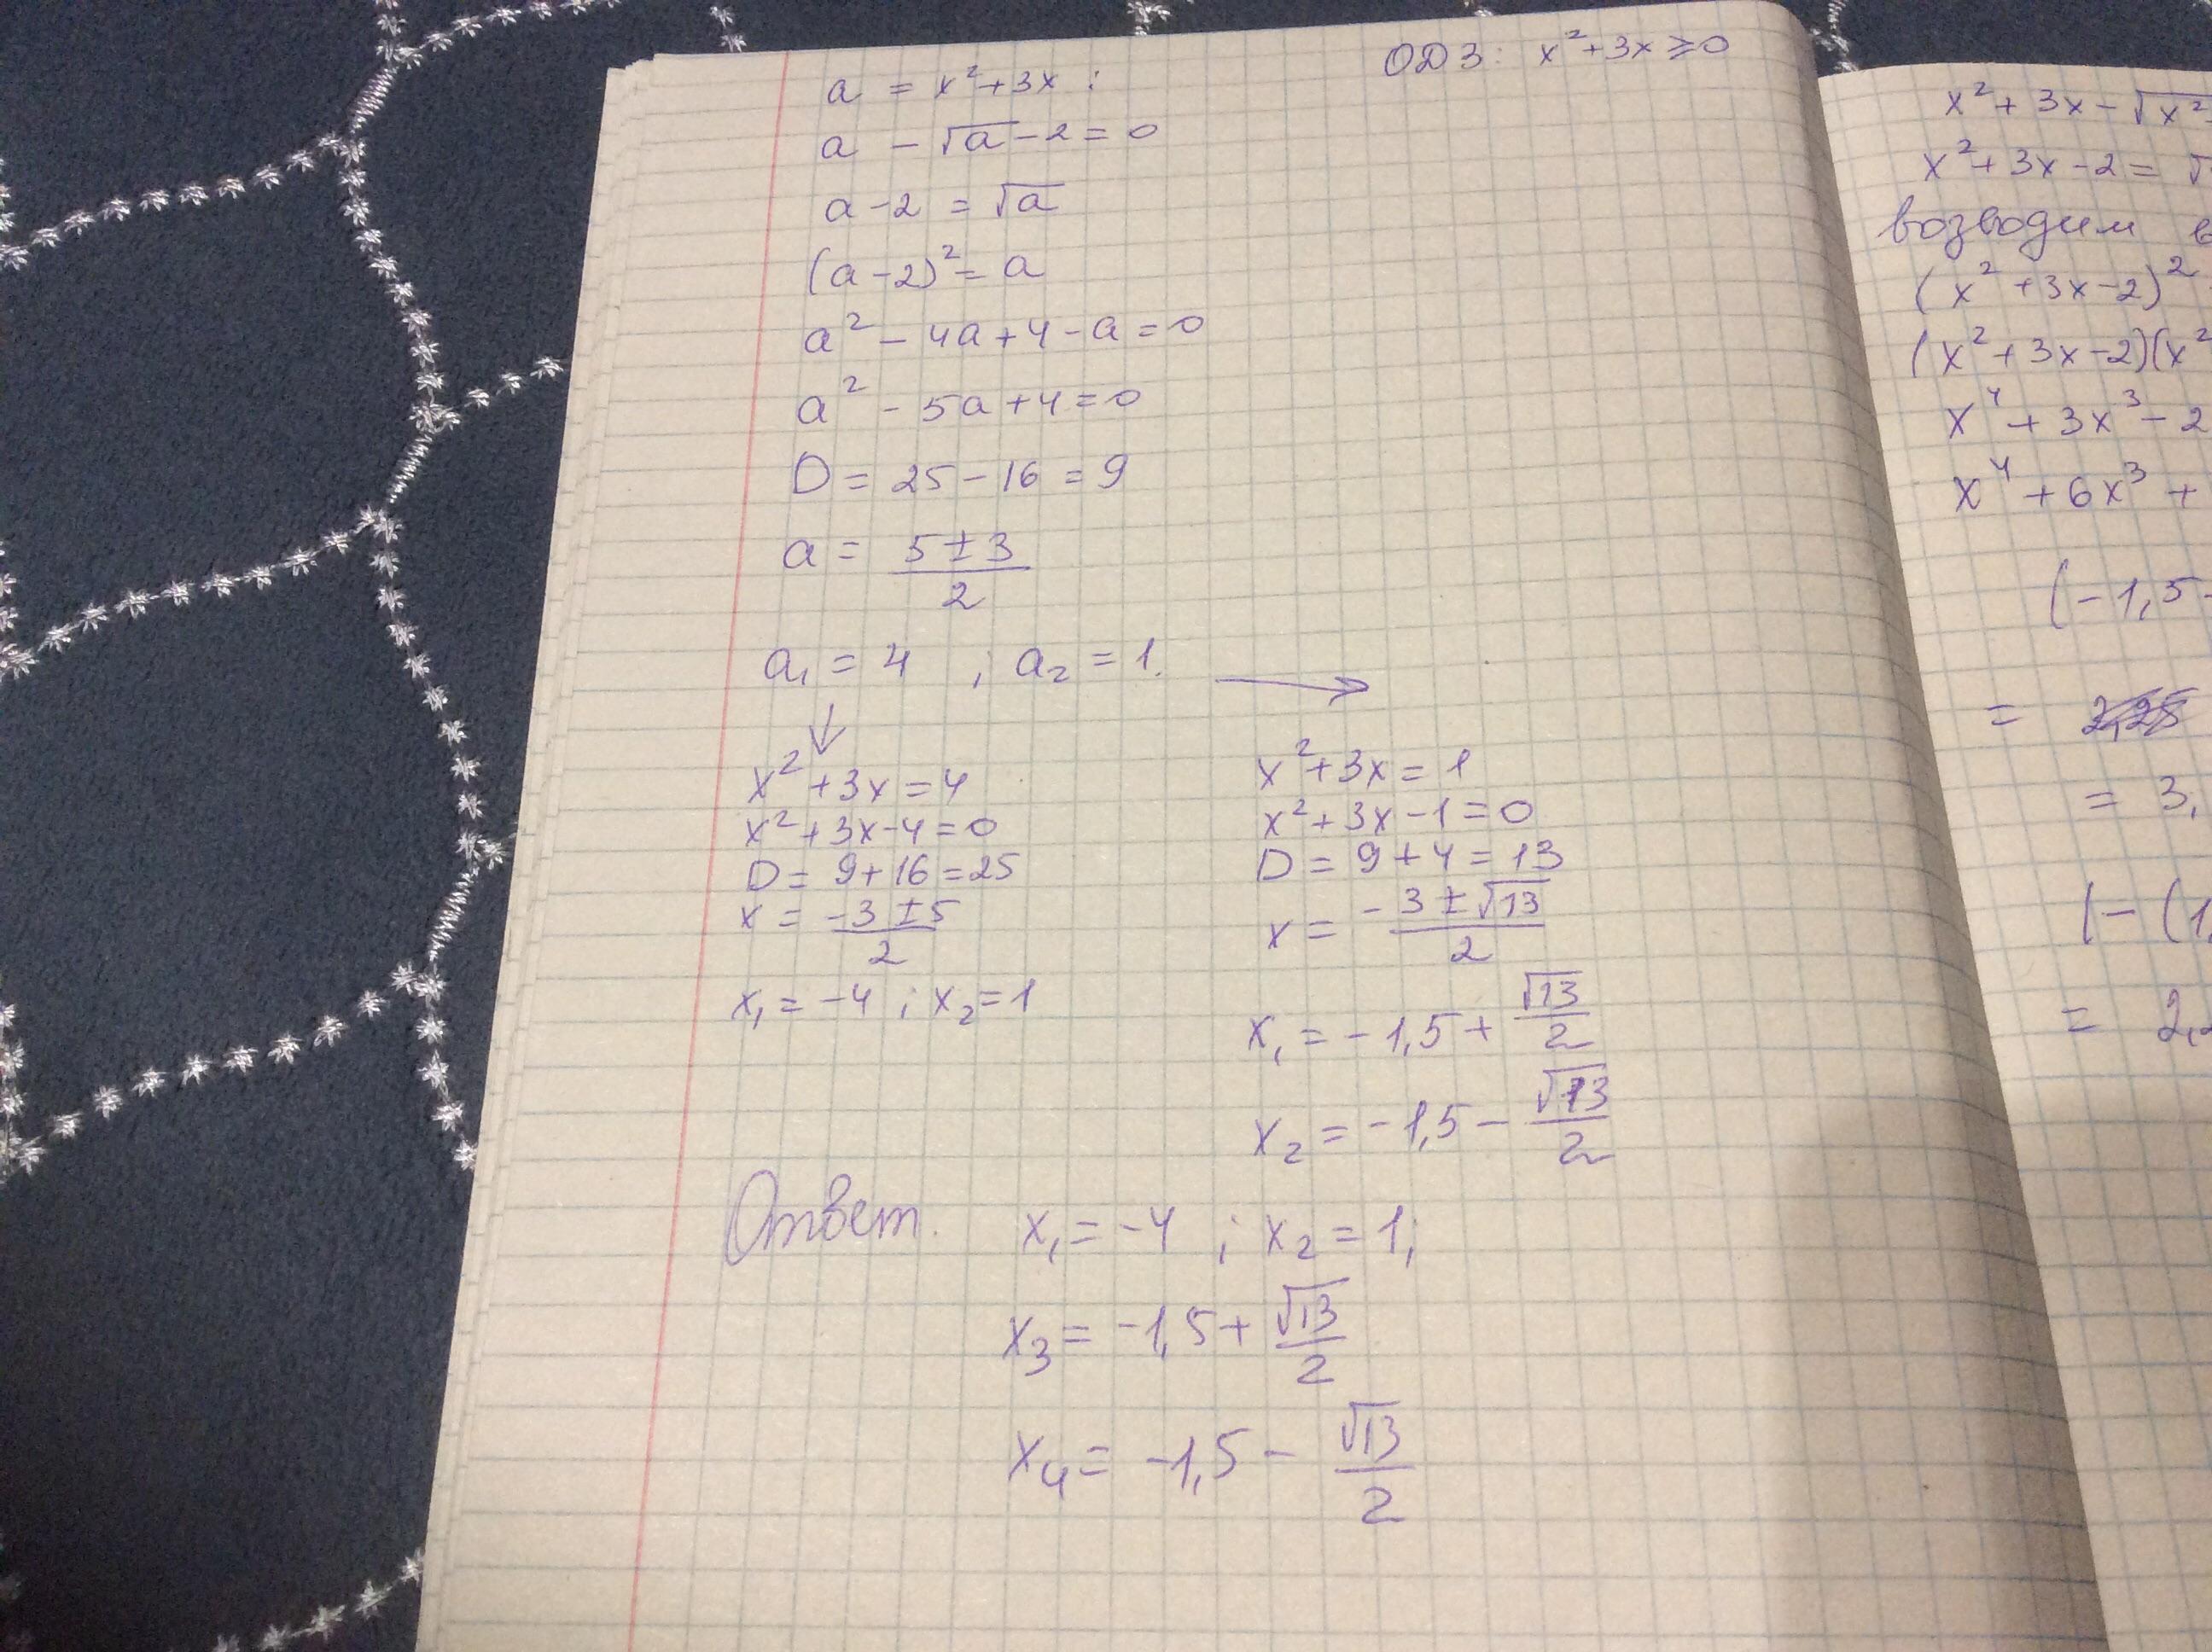 ОДЗ: x²+3x ≥ 0
a = x²+3x :
a - √a - 2 = 0
a - 2 = √a
(a - 2)² = a
a² - 4a + 4 - a = 0
a² - 5a + 4 = 0
D = 25 - 16 = 9
a = (5 ± 3)/2
a₁ = 4 ; a₂ = 1. →
↓
x² + 3x = 4
x² + 3x - 4 = 0
D = 9 + 16 = 25
x = (-3 ± 5)/2
x₁ = -4 ; x₂ = 1
x² + 3x = 1
x² + 3x - 1 = 0
D = 9 + 4 = 13
x = (-3 ± √13)/2
x₁ = -1,5 + √13/2
x₂ = -1,5 - √13/2
Ответ. x₁ = -4 ; x₂ = 1;
x₃ = -1,5 + √13/2
x₄ = -1,5 - √13/2
x² + 3x - √x²
x² + 3x - 2 = √
возводим в
(x² + 3x - 2)²
(x² + 3x - 2)(x²
x⁴ + 3x³ - 2
x⁴ + 6x³ +
(-1,5
=
= 3,
(-(1,
= 2,2